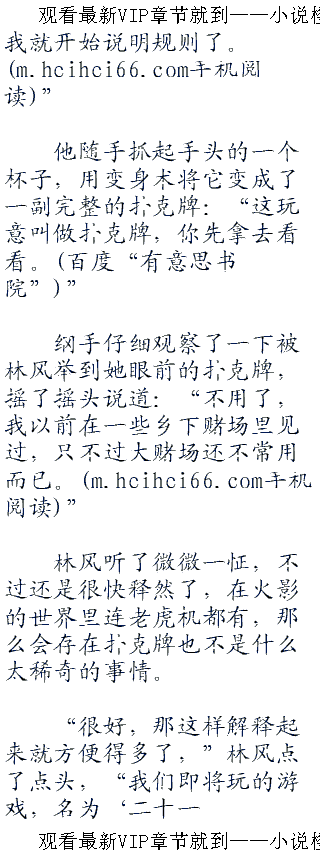 观看最新VIP章节就到——小说
我就开始说明规则了。
(m.hcihci66.com手机阅
读)”
他随手抓起手头的一个
杯子，用变身术将它变成了
一副完整的扑克牌：“这玩
意叫做扑克牌，你先拿去看
看。(百度“有意思书
院”)”
纲手仔细观察了一下被
林风举到她眼前的扑克牌，
摇了摇头说道：“不用了，
我以前在一些乡下赌场里见
过，只不过大赌场还不常用
而已。(m.hcihci66.com手机
阅读)”
林风听了微微一怔，不
过还是很快释然了，在火影
的世界里连老虎机都有，那
么会存在扑克牌也不是什么
太稀奇的事情。
“很好，那这样解释起
来就方便得多了，”林风点
了点头，“我们即将玩的游
戏，名为‘二十一
观看最新VIP章节就到——小说